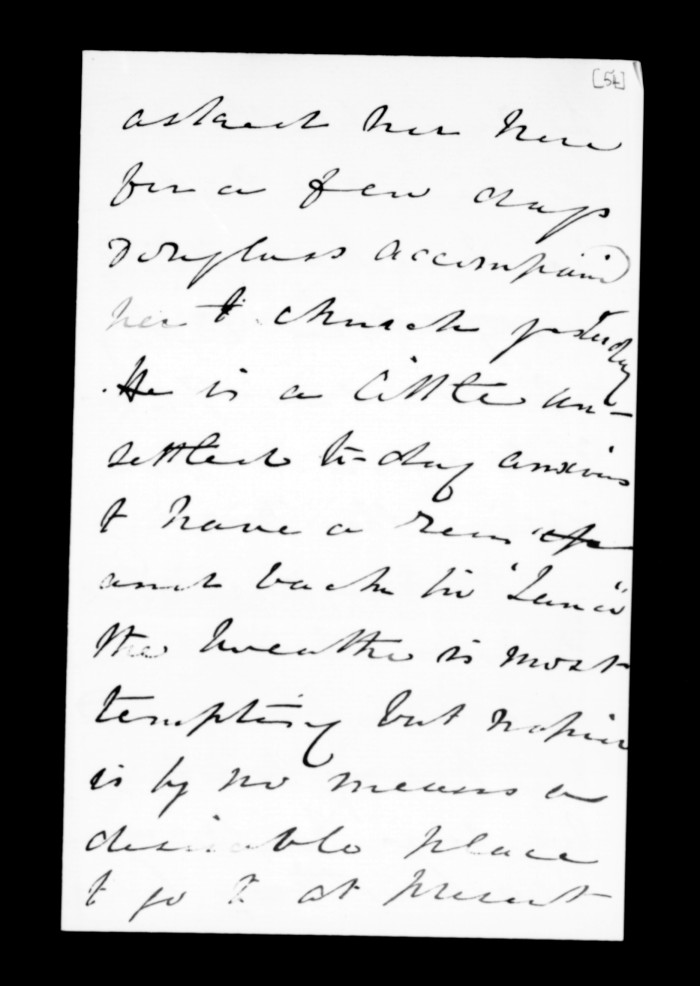 [54]
asked her here
for a few days
Douglass accompanied
her to church yesterday
He is a little un-
settled to-day anxious
to have a run up
and back in "Luna"
the weather is most
tempting but Napier
is by no means a
desirable place
to go to at present